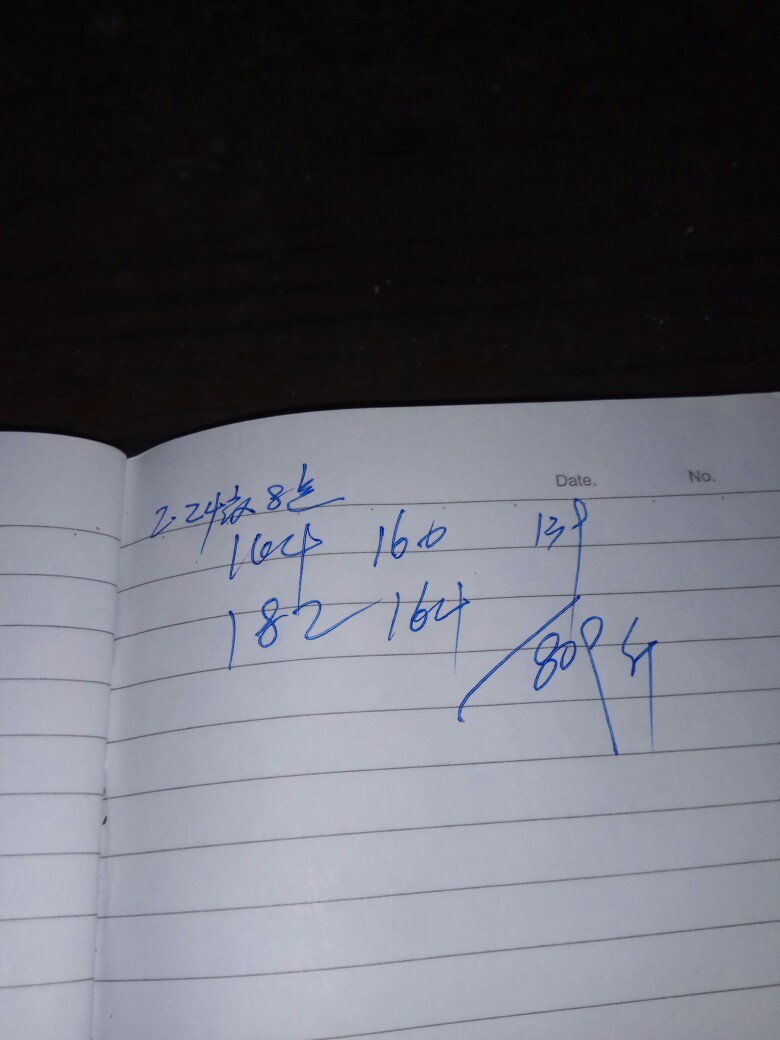 Date. No.
2.24放8点
164 160 139
182 164
809斤